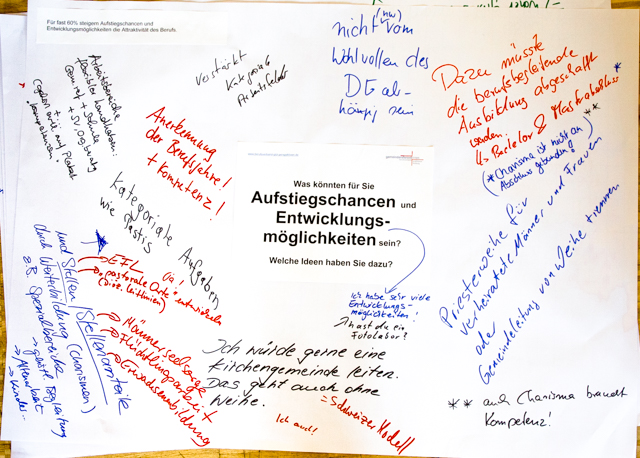 Für fast 60% steigern Aufstiegschancen und
Entwicklungsmöglichkeiten die Attraktivität des Berufs.
verstärkt
Kategoriale
Arbeitsfelder
nicht (nur) vom
Wohlwollen des
DG ab-
hängig sein
Dazu müsste
die berufsbegleitende
Ausbildung abgeschafft
werden.
↳ Bachelor & Masterabschluss
**
(* Charisma ist nicht an
Abschluss gebunden!)
Anerkennung
der Berufsjahre!
+ Kompetenz!
Kategoriale Aufgaben
wie
Was könnten für Sie
Aufstiegschancen und
Entwicklungs-
möglichkeiten sein?
Welche Ideen haben Sie dazu?
Ich habe sehr viele
Entwicklungs-
möglichkeiten!
hast du ein
Fotolabor?
Priesterweihe für
verheiratete Männer und Frauen
oder
Gemeindeleitung von Weihe trennen
EFL
Ja!
"pastorale Orte" entwickeln
(Diöz. Leitlinien)
Männerseelsorge
Flüchtlingsarbeit
Erwachsenenbildung
und Stellen
Stellenanteile
durch Weiterbildung (Charismen)
z.B. Spezialbereiche
→ geistl. Begleitung
→ Altenarbeit
→ Kinder..
Ich würde gerne eine
Kirchengemeinde leiten.
Das geht auch ohne
Weihe.
= Schweizer Modell
Ich auch!
** auch Charisma braucht
Kompetenz!